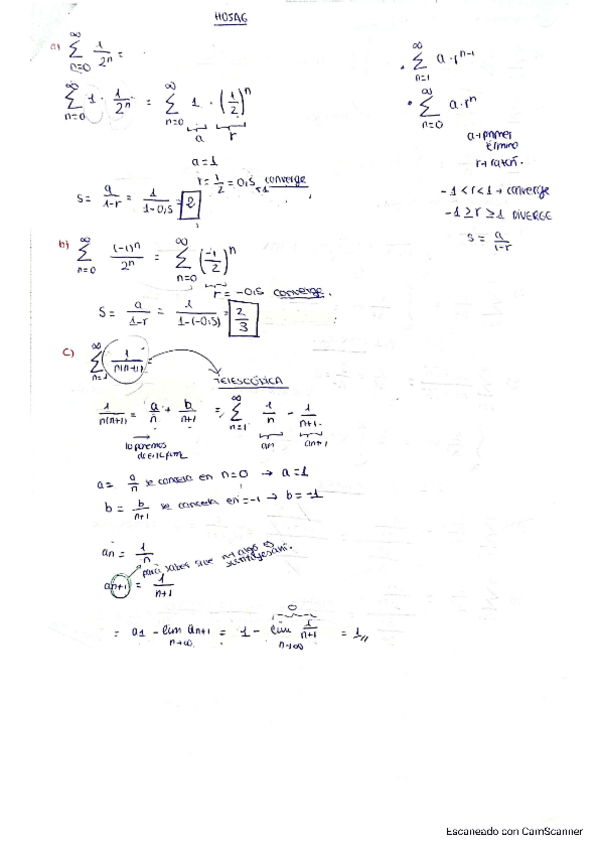 HOJA6
a) ∞∑n=0 1/2ⁿ =
∞∑n=0 1 · 1/2ⁿ = ∞∑n=0 1 · (1/2)ⁿ
a r
a = 1
r = 1/2 = 0,5 <1 converge
S = a/1-r = 1/1-0,5 = 2
• ∞∑n=1 a · rⁿ⁻¹
• ∞∑n=0 a · rⁿ
a → primer término
r → razón.
-1 < r < 1 → converge
-1 ≥ r ≥ 1 DIVERGE
S = a/1-r
b) ∞∑n=0 (-1)ⁿ/2ⁿ = ∞∑n=0 (-1/2)ⁿ
r = -0,5 converge.
S = a/1-r = 1/1-(-0,5) = 2/3
c) ∞∑n=1 1/n(n+1) =
TELESCÓPICA
1/n(n+1) = a/n + b/n+1 = ∞∑n=1 1/n - 1/n+1
an an+1
lo ponemos
a = a/n se cancela en n=0 → a = 1
b = b/n+1 se cancela en =-1 → b = -1
an = 1/n
para saber si
an+1 = 1/n+1
= a1 - lim n→∞ an+1 = 1 - lim n→∞ 1/n+1 = 1//
0
Escaneado con CamScanner